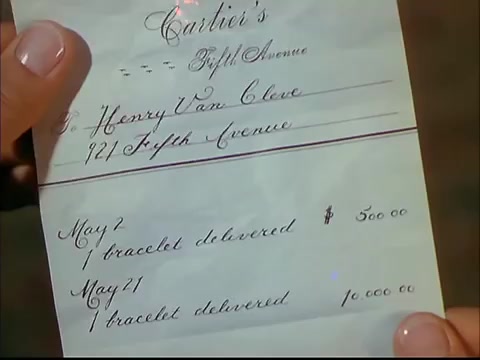 Cartier's
Fifth Avenue
To Henry Van Cleve
921 Fifth Avenue
May 2
1 bracelet delivered $ 500 00
May 21
1 bracelet delivered 10.000 00